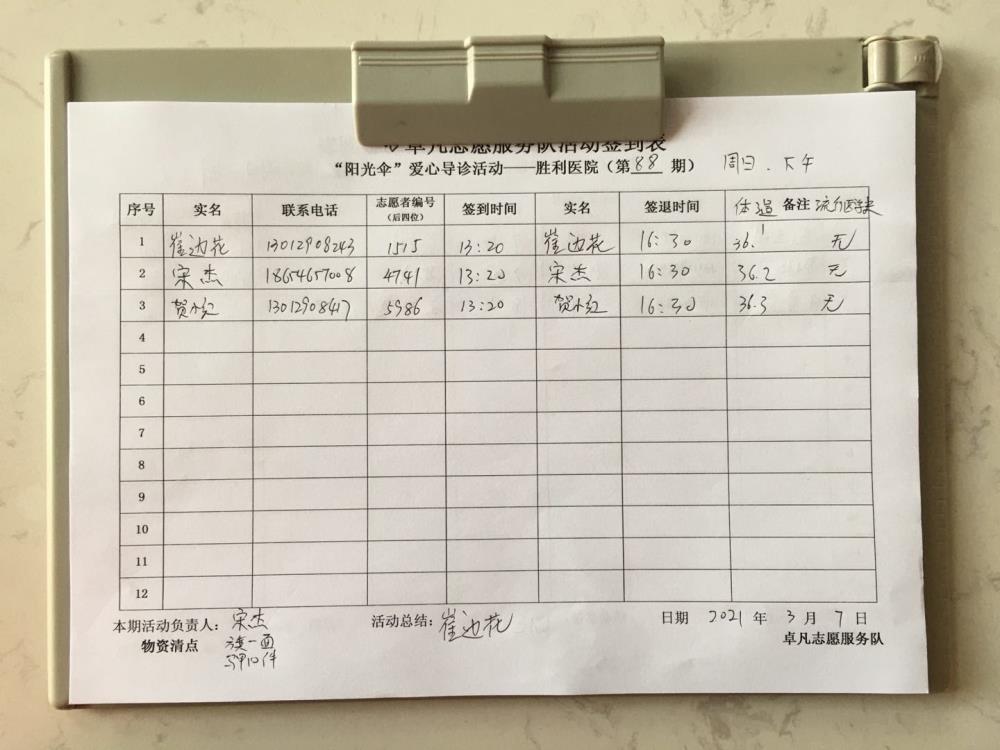 卓凡志愿服务队活动签到表
“阳光伞”爱心导诊活动——胜利医院（第88期） 周日.下午
序号 实名 联系电话 志愿者编号（后四位） 签到时间 实名 签退时间 体温 备注 流行医学史
1 崔边花 13012908243 1515 13:20 崔边花 16:30 36.1 无
2 宋杰 18654657008 4741 13:20 宋杰 16:30 36.2 无
3 13012908417 5986 13:20 16:30 36.3 无
4
5
6
7
8
9
10
11
12
本期活动负责人：宋杰 活动总结：崔边花 日期 2021年3月7日
物资清点 旗一面 卓凡志愿服务队
马甲10件